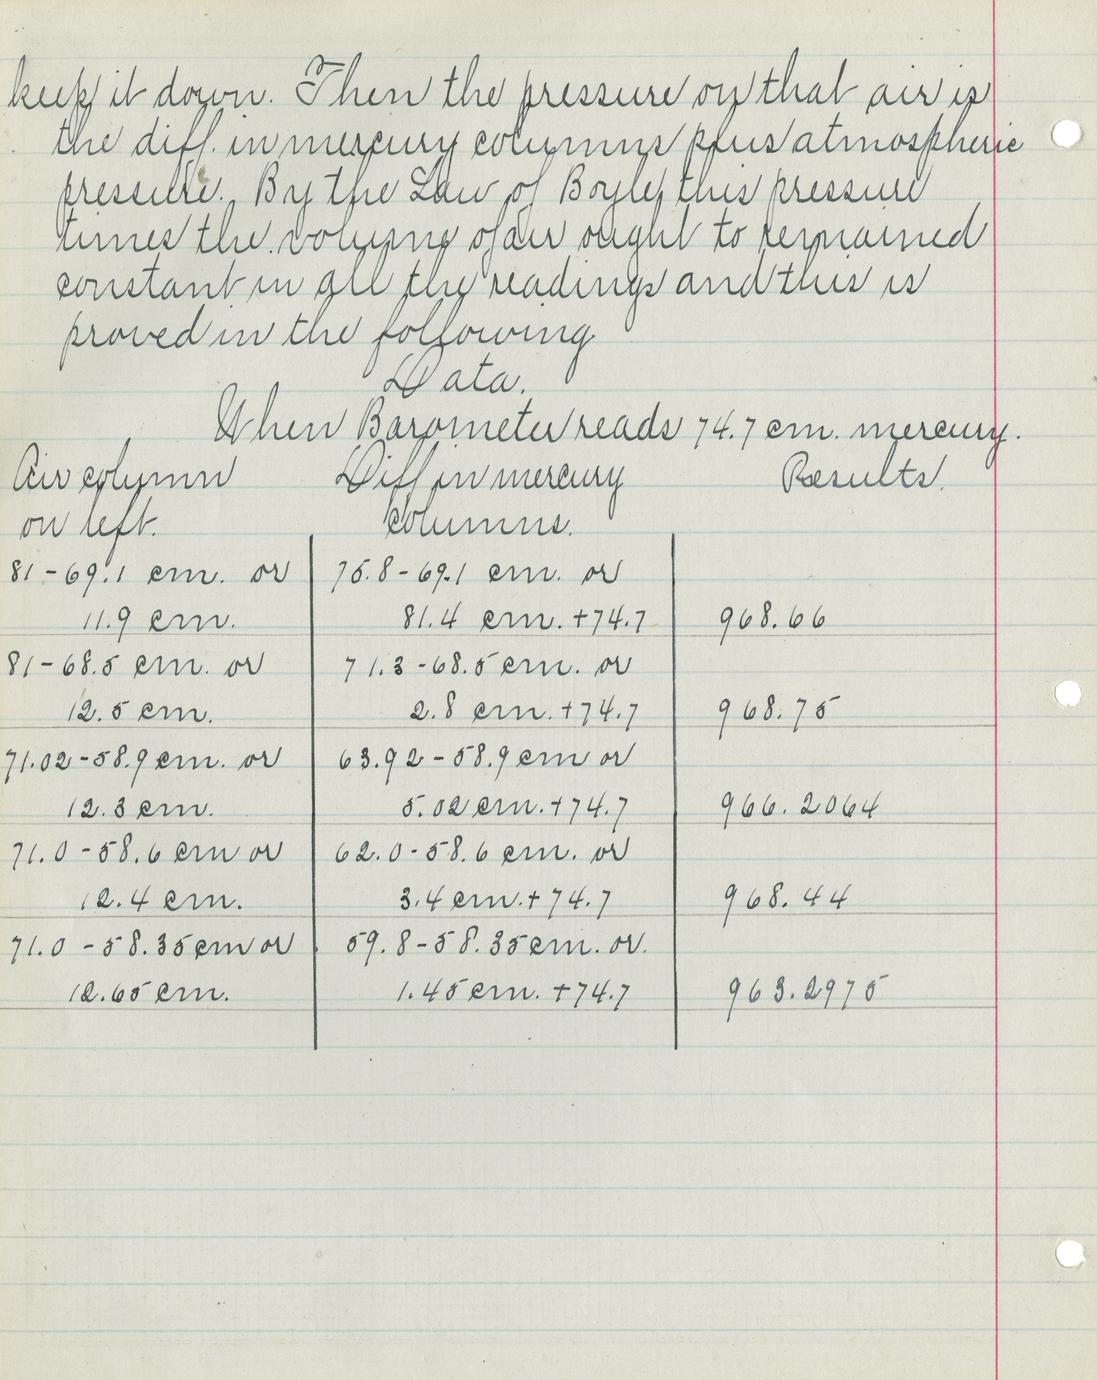 keep it down. Then the pressure on that air is
the diff. in mercury columns plus atmospheric
pressure. By the Law of Boyle, this pressure
times the volume of air ought to remained
constant in all the readings and this is
proved in the following
Data.
When Barometer reads 74.7 cm. mercury.
Air column Diff in mercury Results.
on left. columns.
81-69.1 cm. or 75.8-69.1 cm. or
11.9 cm. 81.4 cm. +74.7 968.66
81-68.5 cm. or 71.3-68.5 cm. or
12.5 cm. 2.8 cm. +74.7 968.75
71.02-58.9 cm. or 63.92-58.9 cm or
12.3 cm. 5.02 cm. +74.7 966.2064
71.0-58.6 cm or 62.0-58.6 cm. or
12.4 cm. 3.4 cm. +74.7 968.44
71.0-58.35 cm or 59.8-58.35 cm. or.
12.65 cm. 1.45 cm. +74.7 963.2975